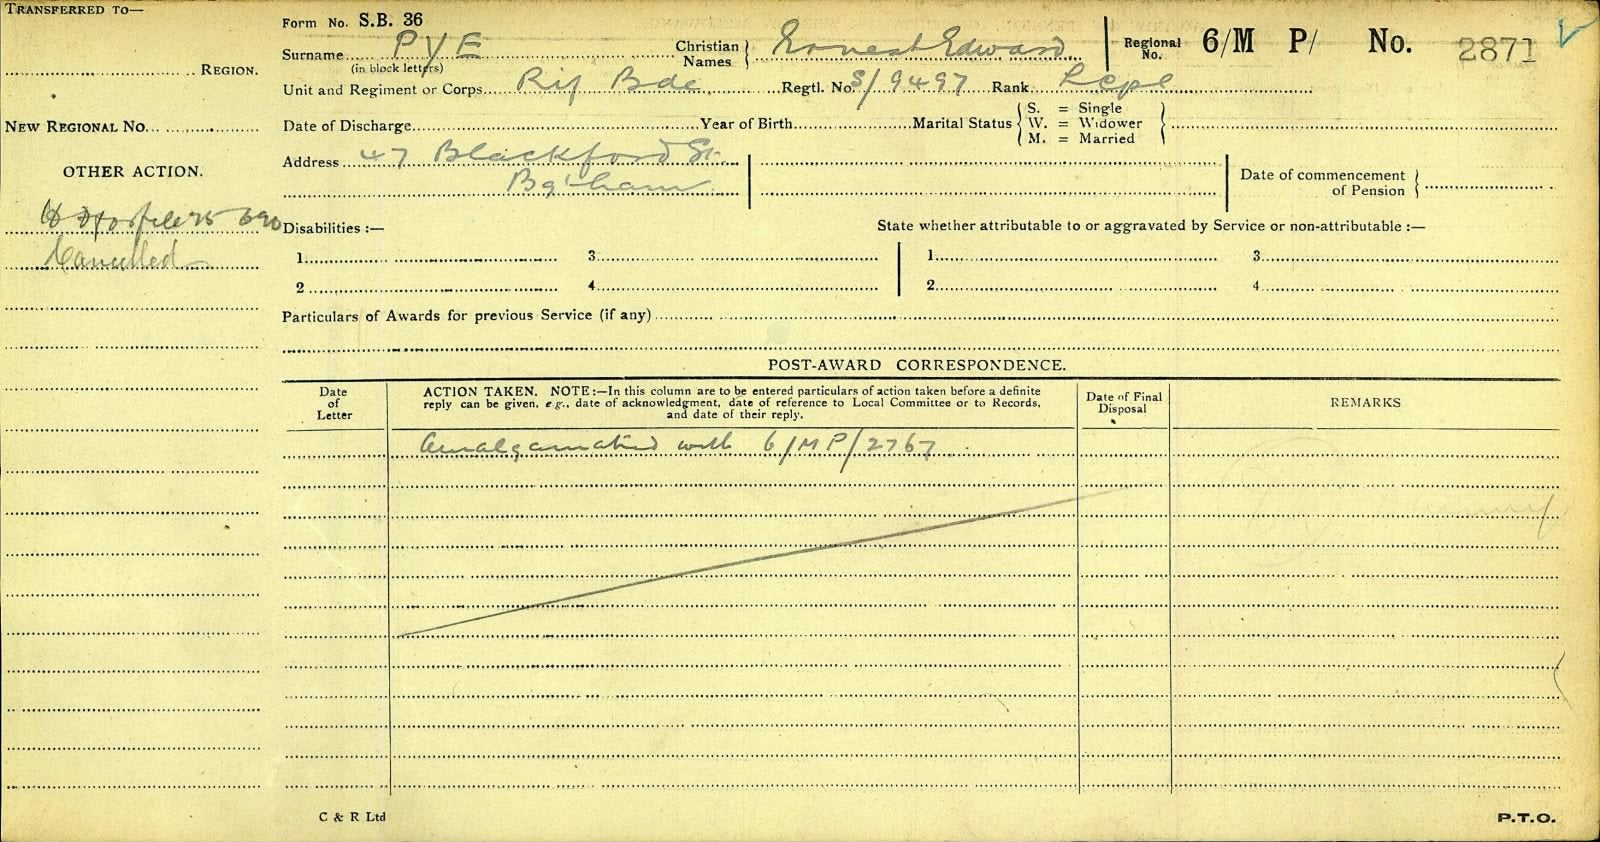 TRANSFERRED TO—
REGION.
NEW REGIONAL No.
OTHER ACTION.
25 690
Cancelled
Form No. S.B. 36
Surname PYE
(in block letters)
Christian Names Ernest Edward
Regional No. 6/M P/ No. 2871
Unit and Regiment or Corps Rif Bde
Regtl. No. S/9497
Rank Lcpl
Date of Discharge
Year of Birth
Marital Status
S. = Single
W. = Widower
M. = Married
Address 47 Blackford St.
B'gham
Date of commencement of Pension
Disabilities :—
1. 3.
2 4.
State whether attributable to or aggravated by Service or non-attributable :—
1. 3.
2. 4
Particulars of Awards for previous Service (if any)
POST-AWARD CORRESPONDENCE.
Date of Letter
ACTION TAKEN. NOTE:—In this column are to be entered particulars of action taken before a definite
reply can be given, e.g., date of acknowledgment, date of reference to Local Committee or to Records,
and date of their reply.
Date of Final Disposal
REMARKS
Amalgamated with 6/MP/2767
C & R Ltd
P.T.O.